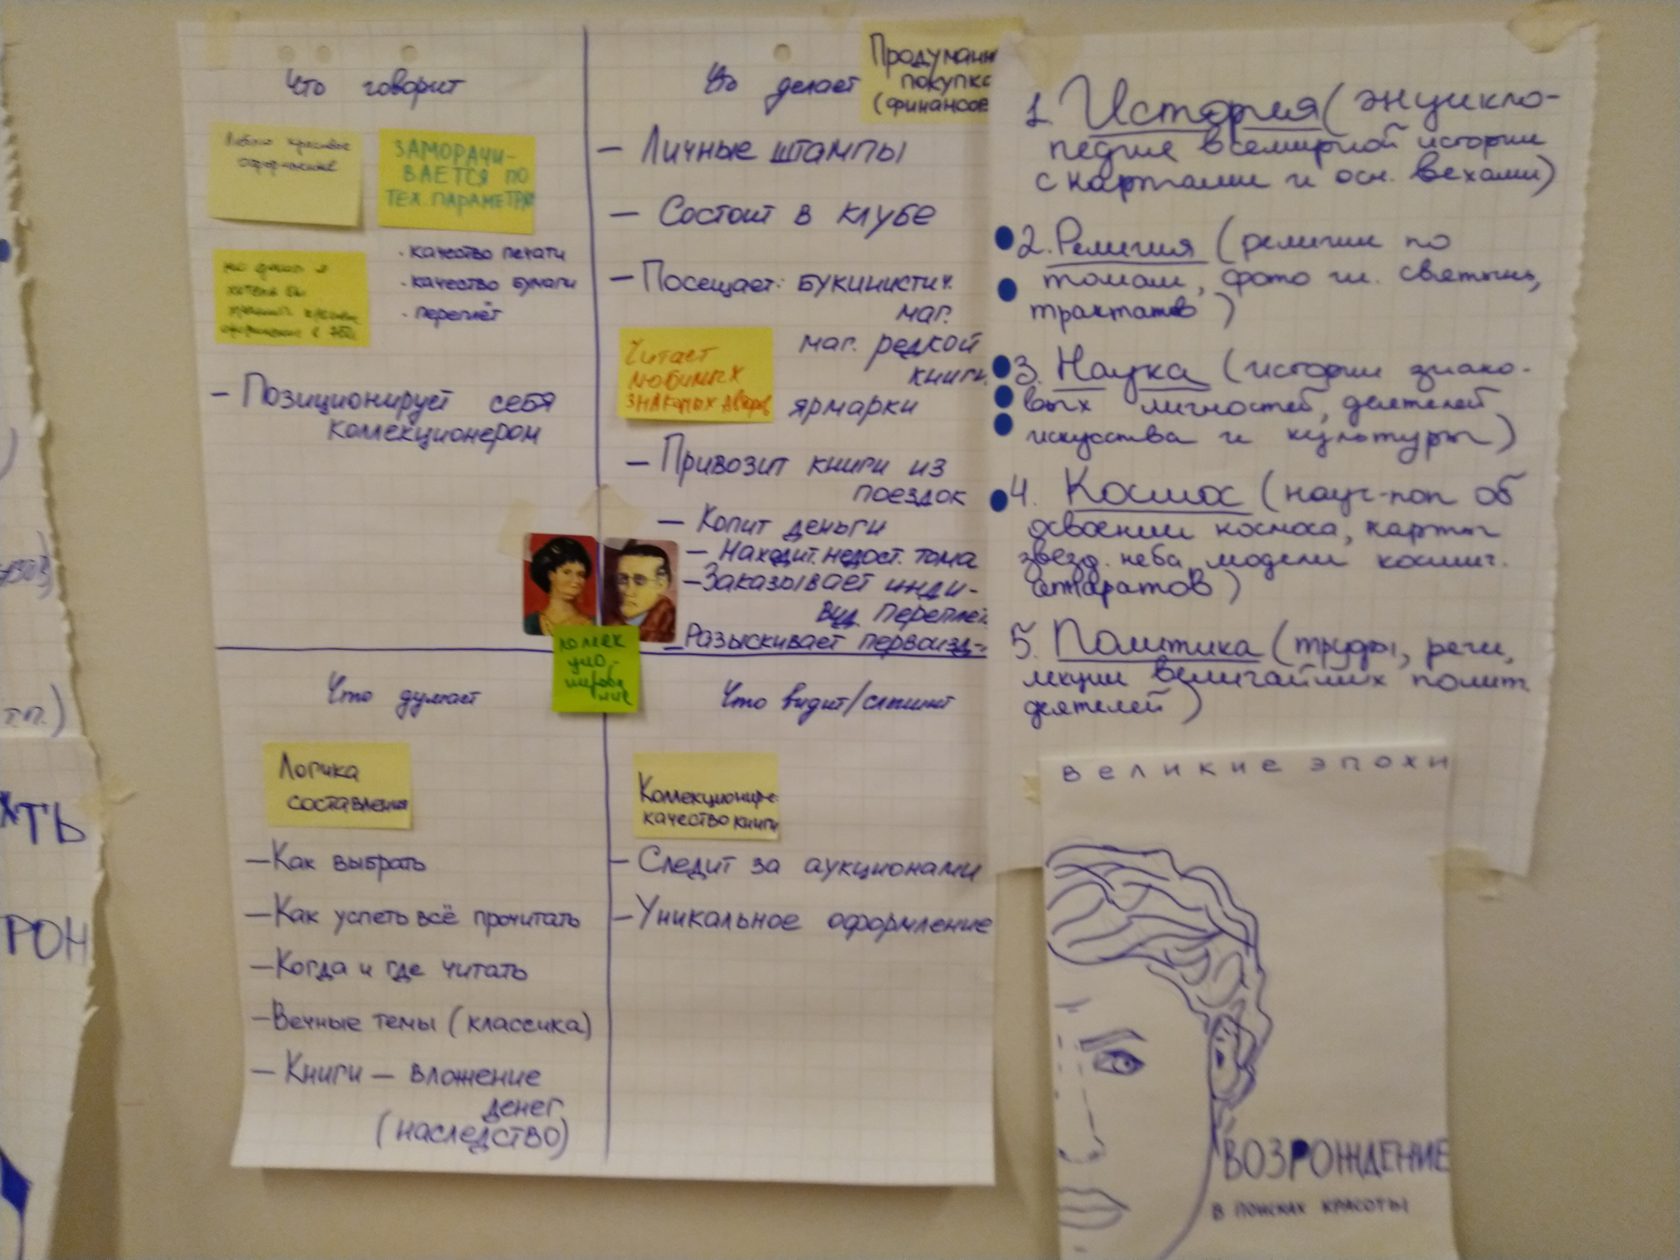 Что говорит
Люблю красивое
оформление
ЗАМОРАЧИ-
ВАЕТСЯ ПО
ТЕХ. ПАРАМЕТРАМ
· качество печати
· качество бумаги
· переплёт
хотела бы
– Позиционирует себя
коллекционером
Что делает
Продуманн
покупка
(финансов
– Личные штампы
– Состоит в клубе
– Посещает: букинистич.
маг.
маг. редкой
книги
ярмарки
Читает
любимых
знакомых авторов
– Привозит книги из
поездок
– Копит деньги
– Находит недост. тома
– Заказывает инди-
вид. переплёт
– Разыскивает первоизд-
коллек
цио-
нирова
ние
Что думает
Логика
составления
– Как выбрать
– Как успеть всё прочитать
– Когда и где читать
– Вечные темы (классика)
– Книги – вложение
денег
(наследство)
Что видит/слышит
Коллекционир-е
качество книги
– Следит за аукционами
– Уникальное оформление
1. История (энцикло-
педия всемирной истории
с картами и осн. вехами)
2. Религия (религии по
томам, фото гл. святынь,
трактатов)
3. Наука (истории знако-
вых личностей, деятелей
искусства и культуры)
4. Космос (науч-поп об
освоении космоса, карты
звёзд. неба модели космич.
аппаратов)
5. Политика (труды, речи,
лекции величайших полит.
деятелей)
ВЕЛИКИЕ ЭПОХИ
ВОЗРОЖДЕНИЕ
В ПОИСКАХ КРАСОТЫ
т.п.)
ТЬ
РОН